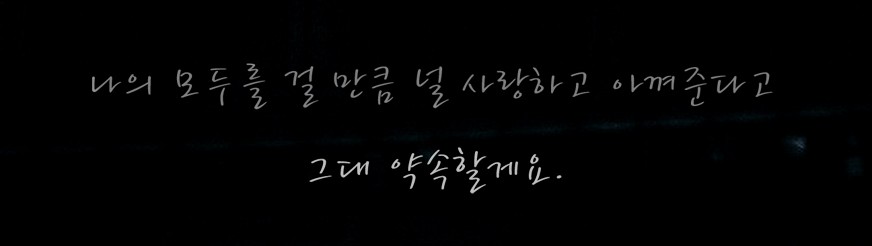 나의 모두를 걸 만큼 널 사랑하고 아껴준다고
그대 약속할게요.